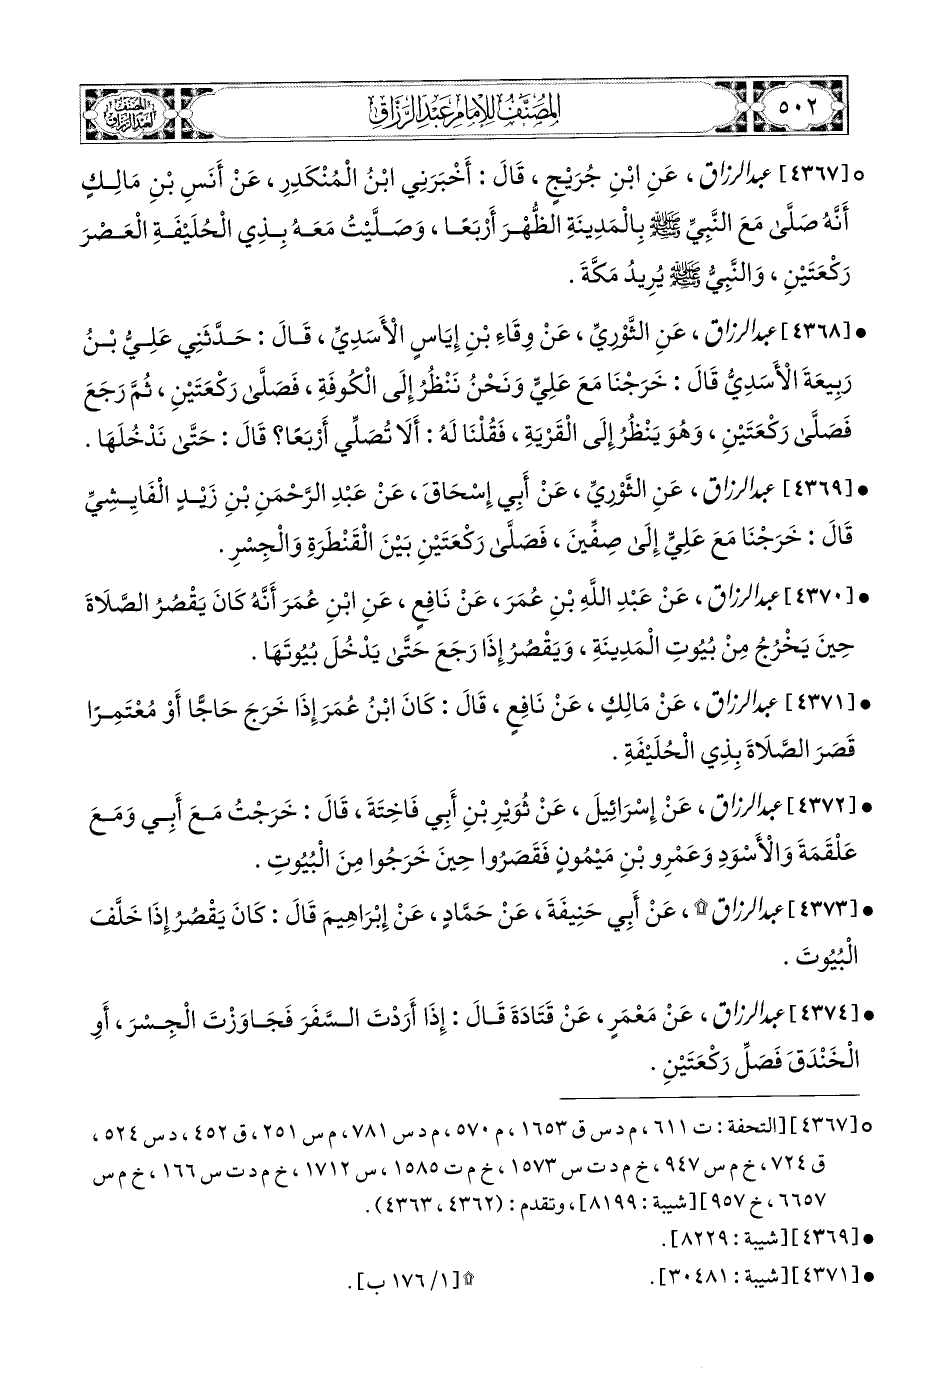 ٥٠٢
المصنف للإمام عبد الرزاق
المصنف
لعبد الرزاق
٥ [٤٣٦٧] عبد الرزاق، عَنِ ابْنِ جُرَيْجٍ، قَالَ: أَخْبَرَنِي ابْنُ الْمُنْكَدِرِ، عَنْ أَنَسِ بْنِ مَالِكٍ
أَنَّهُ صَلَّىٰ مَعَ النَّبِيِّ ﷺ بِالْمَدِينَةِ الظُّهْرَ أَرْبَعًا، وَصَلَّيْتُ مَعَهُ بِذِي الْحُلَيْفَةِ الْعَصْرَ
رَكْعَتَيْنِ، وَالنَّبِيُّ ﷺ يُرِيدُ مَكَّةَ.
• [٤٣٦٨] عبد الرزاق، عَنِ الثَّوْرِيِّ، عَنْ وِقَاءِ بْنِ إِيَاسٍ الْأَسَدِيِّ، قَالَ: حَدَّثَنِي عَلِيُّ بْنُ
رَبِيعَةَ الْأَسَدِيُّ قَالَ: خَرَجْنَا مَعَ عَلِيٍّ وَنَحْنُ نَنْظُرُ إِلَى الْكُوفَةِ، فَصَلَّىٰ رَكْعَتَيْنِ، ثُمَّ رَجَعَ
فَصَلَّىٰ رَكْعَتَيْنِ، وَهُوَ يَنْظُرُ إِلَى الْقَرْيَةِ، فَقُلْنَا لَهُ: أَلَا تُصَلِّي أَرْبَعًا؟ قَالَ: حَتَّىٰ نَدْخُلَهَا.
• [٤٣٦٩] عبد الرزاق، عَنِ الثَّوْرِيِّ، عَنْ أَبِي إِسْحَاقَ، عَنْ عَبْدِ الرَّحْمَنِ بْنِ زَيْدٍ الْفَايِشِيِّ
قَالَ: خَرَجْنَا مَعَ عَلِيٍّ إِلَىٰ صِفِّينَ، فَصَلَّىٰ رَكْعَتَيْنِ بَيْنَ الْقَنْطَرَةِ وَالْجِسْرِ.
• [٤٣٧٠] عبد الرزاق، عَنْ عَبْدِ اللَّهِ بْنِ عُمَرَ، عَنْ نَافِعٍ، عَنِ ابْنِ عُمَرَ أَنَّهُ كَانَ يَقْصُرُ الصَّلَاةَ
حِينَ يَخْرُجُ مِنْ بُيُوتِ الْمَدِينَةِ، وَيَقْصُرُ إِذَا رَجَعَ حَتَّىٰ يَدْخُلَ بُيُوتَهَا.
• [٤٣٧١] عبد الرزاق، عَنْ مَالِكٍ، عَنْ نَافِعٍ، قَالَ: كَانَ ابْنُ عُمَرَ إِذَا خَرَجَ حَاجًّا أَوْ مُعْتَمِرًا
قَصَرَ الصَّلَاةَ بِذِي الْحُلَيْفَةِ.
• [٤٣٧٢] عبد الرزاق، عَنْ إِسْرَائِيلَ، عَنْ ثُوَيْرِ بْنِ أَبِي فَاخِتَةَ، قَالَ: خَرَجْتُ مَعَ أَبِي وَمَعَ
عَلْقَمَةَ وَالْأَسْوَدِ وَعَمْرِو بْنِ مَيْمُونٍ فَقَصَرُوا حِينَ خَرَجُوا مِنَ الْبُيُوتِ.
• [٤٣٧٣] عبد الرزاق ۩، عَنْ أَبِي حَنِيفَةَ، عَنْ حَمَّادٍ، عَنْ إِبْرَاهِيمَ قَالَ: كَانَ يَقْصُرُ إِذَا خَلَّفَ
الْبُيُوتَ.
• [٤٣٧٤] عبد الرزاق، عَنْ مَعْمَرٍ، عَنْ قَتَادَةَ قَالَ: إِذَا أَرَدْتَ السَّفَرَ فَجَاوَزْتَ الْجِسْرَ، أَوِ
الْخَنْدَقَ فَصَلِّ رَكْعَتَيْنِ.
٥ [٤٣٦٧] [التحفة: ت ٦١١، م د س ق ١٦٥٣، م ٥٧٠، م د س ٧٨١، م س ٢٥١، ق ٤٥٢، د س ٥٢٤،
ق ٧٢٤، خ م س ٩٤٧، خ م د ت س ١٥٧٣، خ م ت ١٥٨٥، س ١٧١٢، خ م د ت س ١٦٦، خ م س
٦٦٥٧، خ ٩٥٧] [شيبة: ٨١٩٩]، وتقدم: (٤٣٦٢، ٤٣٦٣).
• [٤٣٦٩] [شيبة: ٨٢٢٩].
• [٤٣٧١] [شيبة: ٣٠٤٨١].
۩ [١/ ١٧٦ ب].